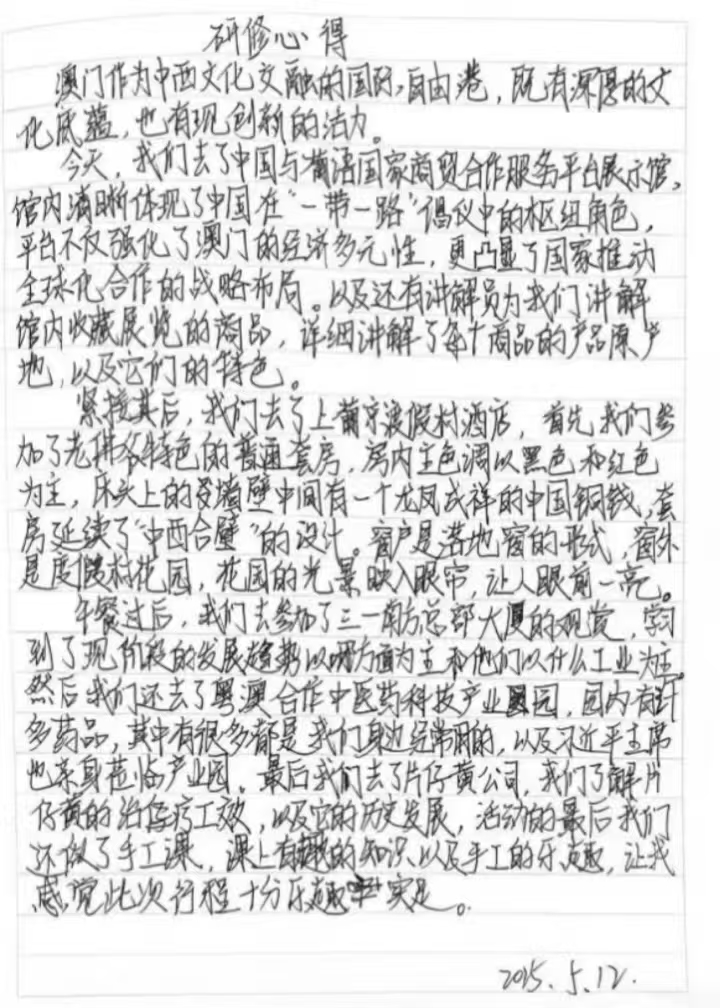 研修心得
澳门作为中西文化交融的国际自由港，既有深厚的文
化底蕴，也有现创新的活力。
今天，我们去了中国与葡语国家商贸合作服务平台展示馆。
馆内清晰体现了中国在“一带一路”倡仪中的枢纽角色，
平台不仅强化了澳门的经济多元性，更凸显了国家推动
全球化合作的战略布局。以及还有讲解员为我们讲解
馆内收藏展览的商品，详细讲解了每个商品的产品原产
地，以及它们的特色。
紧接其后，我们去了上葡京渡假村酒店，首先我们参
加了老佛爷特色的普通套房，房内主色调以黑色和红色
为主，床头上的墙壁中间有一个龙凤呈祥的中国铜钱，套
房延续了“中西合璧”的设计。窗户是落地窗的形式，窗外
是度假村花园，花园的光景映入眼帘，让人眼前一亮。
午餐过后，我们去参加了三一南方总部大厦的观赏，学习
到了现阶段的发展趋势以哪方面为主和他们以什么工业为主。
然后我们还去了粤澳合作中医药科技产业园，园内有许
多药品，其中有很多都是我们身边经常用的，以及习近平主席
也亲身莅临产业园。最后我们去了片仔黄公司，我们了解片
仔黄的治疗工效，以及它的历史发展，活动的最后我们
还做了手工课，课上有趣的知识以及手工的乐趣，让我
感觉此次行程十分乐趣实足。
2025.5.12.